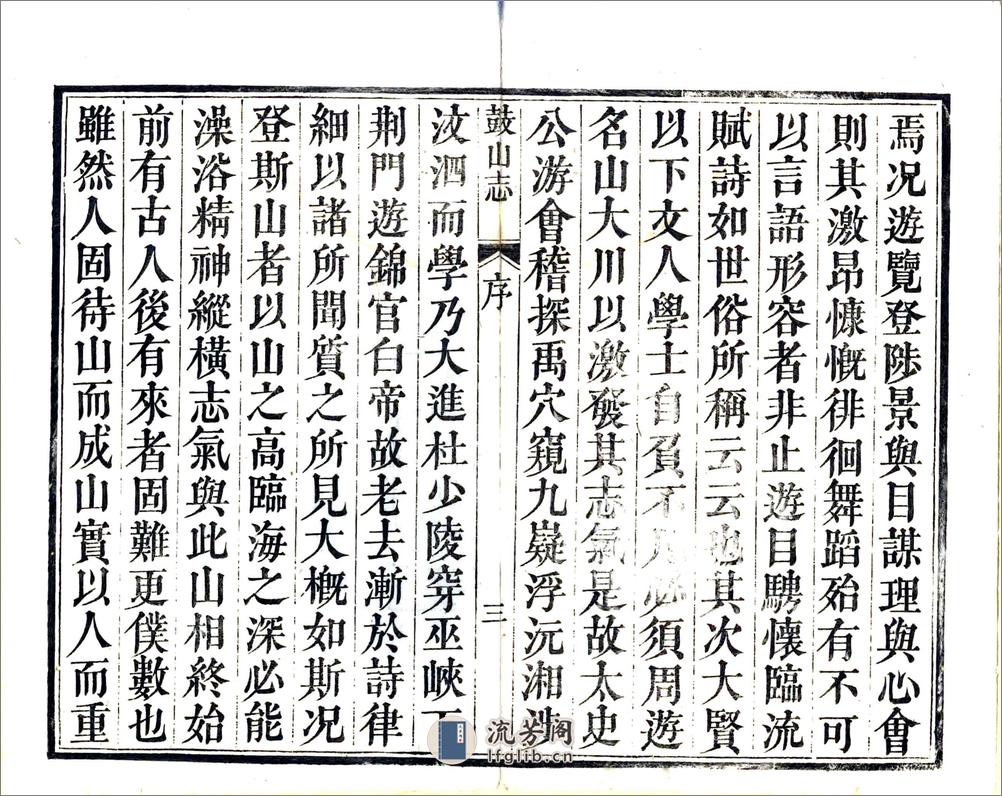 焉况遊覽登陟景與目謀理與心會
則其激昂慷慨徘徊舞蹈殆有不可
以言語形容者非止遊目騁懷臨流
賦詩如世俗所稱云云也其次大賢
以下文人學士自負不必須周遊
名山大川以激發其志氣是故太史
公游會稽探禹穴窺九嶷浮沅湘涉
鼓山志
序
三
汶泗而學乃大進杜少陵穿巫峽下
荆門遊錦官白帝故老去漸於詩律
細以諸所聞質之所見大槪如斯况
登斯山者以山之高臨海之深必能
澡浴精神縱橫志氣與此山相終始
前有古人後有來者固難更僕數也
雖然人固待山而成山實以人而重
流芳閣
lfglib.cn